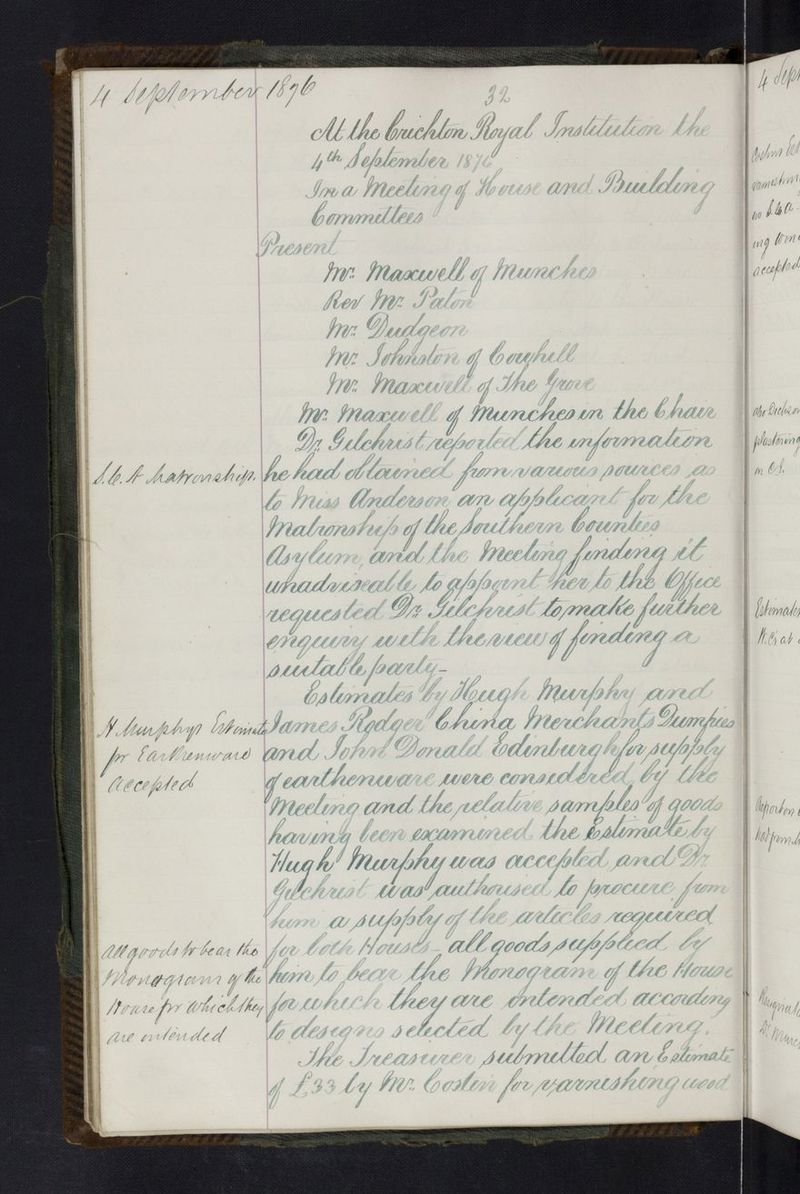 4 September 1876
32
At the Crichton Royal Institution the
4th September 1876
In a Meeting of House and Building
Committees
Present
Mr. Maxwell of Munches
Rev Mr. Paton
Mr. Dudgeon
Mr. Johnston of Cowhill
Mr. Maxwell of The Grove
Mr. Maxwell of Munches in the Chair
Dr. Gilchrist reported the information
S.C.A Matronship.
he had obtained from various sources as
to Miss Anderson an applicant for the
Matronship of the Southern Counties
Asylum, and the Meeting finding it
unadviseable to appoint her to the Office
requested Dr. Gilchrist to make further
enquiry with the view of finding a
suitable party-
Estimates by Hugh Murphy and
H Murphys Estimate
for Earthenware
accepted
James Rodger China Merchants Dumfries
and John Donald Edinburgh for supply
of earthenware were considered by the
Meeting and the relative samples of goods
having been examined the Estimate by
Hugh Murphy was accepted and Dr.
Gilchrist was authorised to procure from
him a supply of the articles required
all goods to bear the
Monogram of the
House for which they
are intended
for both Houses - all goods supplied by
him to bear the Monogram of the House
for which they are intended according
to designs selected by the Meeting.
The Treasurer submitted an Estimate
of £33 by Mr. Costin for varnishing wood
4 Sept
accepted
plastering
in C.I.
Estimates